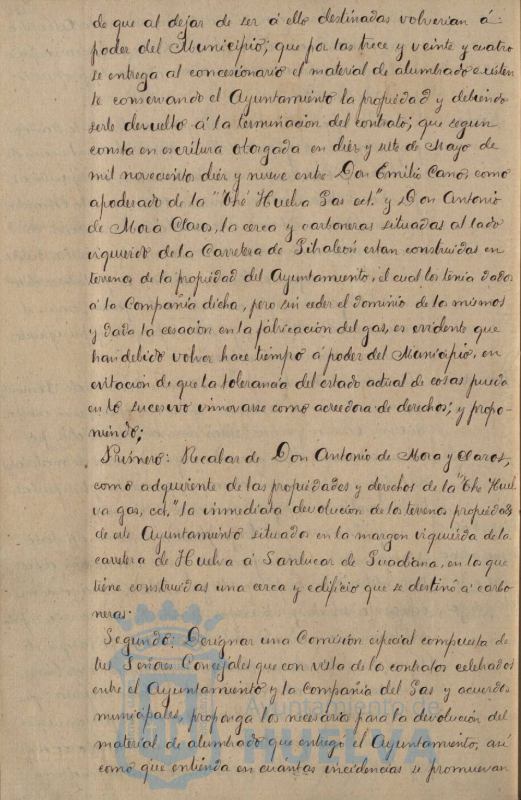 de que al dejar de ser á ello destinadas volverian á
poder del Municipio; que por las trece y veinte y cuatro
se entrega al concesionario el material de alumbrado existen
te conservando el Ayuntamiento la propiedad y debiendo
serle devuelto á la terminacion del contrato; que segun
consta en escritura otorgada en diéz y siete de Mayo de
mil novecientos diéz y nueve entre Don Emilio Cano, como
apoderado de la "The Huelva Gas cct." y Don Antonio
de Mora Claros, la cerca y carboneras situadas al lado
izquierdo de la Carretera de Gibraleón estan construidas en
terrenos de la propiedad del Ayuntamiento, el cual los tenia dados
á la Compañia dicha, pero sin ceder el dominio de los mismos
y dada la cesación en la fabricación del gas, es evidente que
han debido volver hace tiempo á poder del Municipio, en
evitación de que la tolerancia del estado actual de cosas pueda
en lo sucesivo invocarse como acreedora de derechos; y propo-
niendo;
Primero: Recabar de Don Antonio de Mora y Claros,
como adquirente de las propiedades y derechos de la "The Huel
va gas, cct." la inmediata devolución de los terrenos propiedad
de este Ayuntamiento situada en la margen izquierda de la
carretera de Huelva á Sanlucar de Guadiana, en la que
tiene construidas una cerca y edificio que se destinó á carbo
neras.
Segundo: Designar una Comisión especial compuesta de
tres Señores Concejales que con vista de los contratos celebrados
entre el Ayuntamiento y la Compañia del Gas y acuerdos
municipales, proponga los necesarios para la devolución del
material de alumbrado que entregó el Ayuntamiento, asi
como que entienda en cuantas incidencias se promuevan
Ayuntamiento de
HUELVA